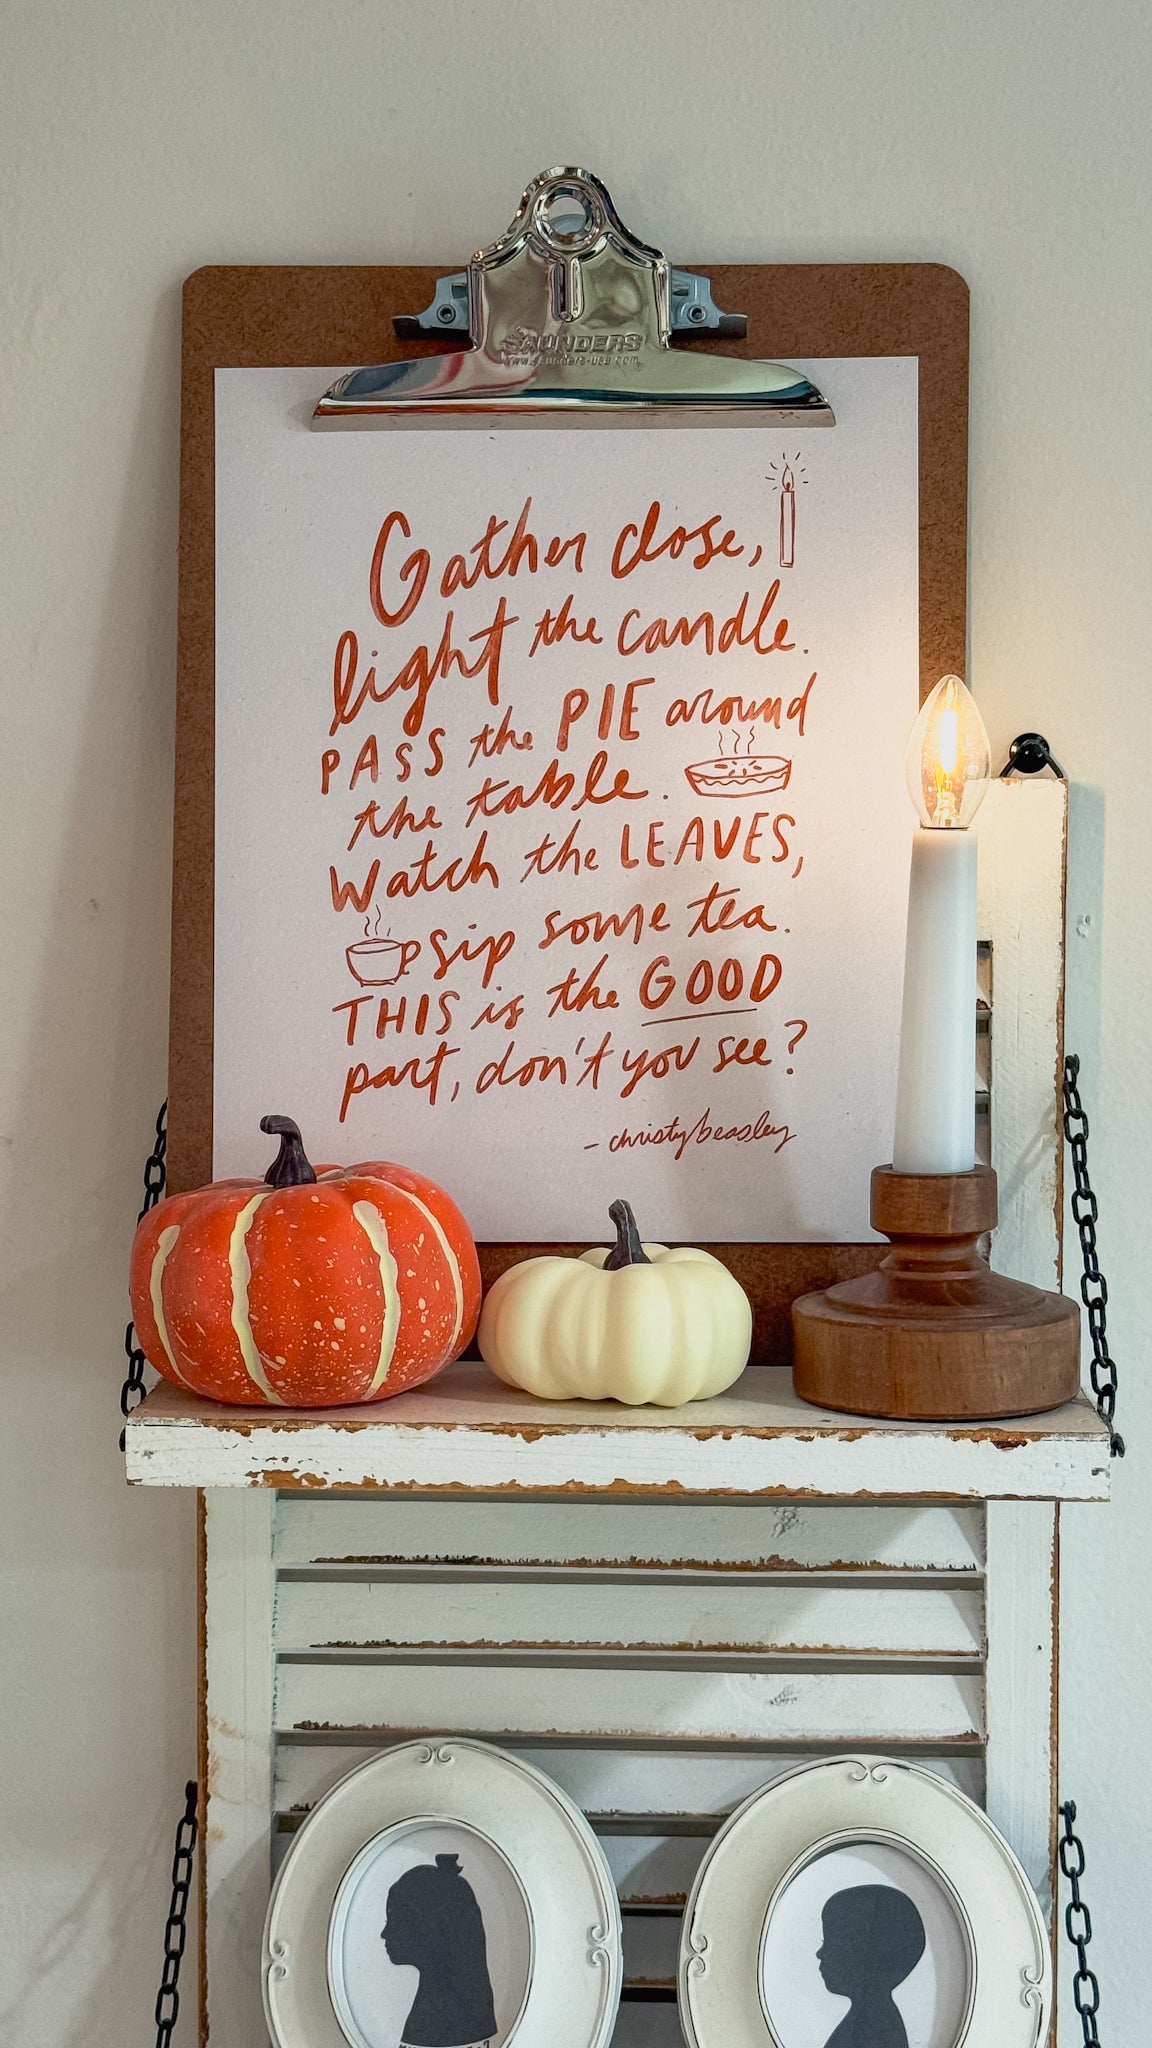 SAUNDERS
www.saunders-usa.com
Gather close,
light the candle.
PASS the PIE around
the table.
Watch the LEAVES,
sip some tea.
THIS is the GOOD
part, don't you see?
- christybeasley